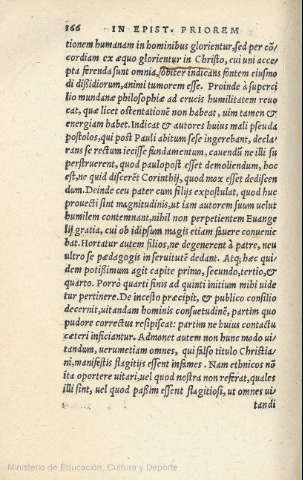 166 IN EPIST. PRIOREM
tionem humanam in hominibus glorientur, sed per cõ/
cordiam ex æquo glorientur in Christo, cui uni acce/
pta ferenda sunt omnia, sobiter indicans fontem eiusmo
di dissidiorum, animi tumorem esse. Proinde à superci
lio mundanæ philosophiæ ad crucis humilitatem reuo
cat, quæ licet ostentationẽ non habeat, uim tamen &
energiam habet. Indicat & autores huius mali pseuda
postolos, qui post Pauli abitum sese ingerebant, decla/
rans se rectum iecisse fundamentum, cauendũ ne illi su
perstruerent, quod paulopost esset demoliendum, hoc
est, ne quid discerẽt Corinthij, quod mox esset dediscen
dum. Deinde ceu pater cum filijs expostulat, quod huc
prouecti sint magnitudinis, ut iam autorem suum uelut
humilem contemnant, nihil non perpetientem Euange
lij gratia, cui ob idipsum magis etiam fauere conuenie
bat. Hortatur autem filios, ne degenerent à patre, neu
ultro se pædagogis in seruitutẽ dedant. Atq; hæc qui/
dem potißimum agit capite primo, secundo, tertio, &
quarto. Porrò quarti finis ad quinti initium mihi uide
tur pertinere. De incesto præcipit, & publico consilio
decernit, uitandam hominis consuetudinẽ, partim quo
pudore correctus resipiscat: partim ne huius contactu
cæteri inficiantur. Admonet autem non hunc modo ui/
tandum, uerumetiam omnes, qui falso titulo Christia/
ni, manifestis flagitijs essent infames. Nam ethnicos nõ
ita oportere uitari, uel quod nostra non referat, quales
illi sint, uel quod paßim essent flagitiosi, ut omnes ui/
tandi
Ministerio de Educación, Cultura y Deporte